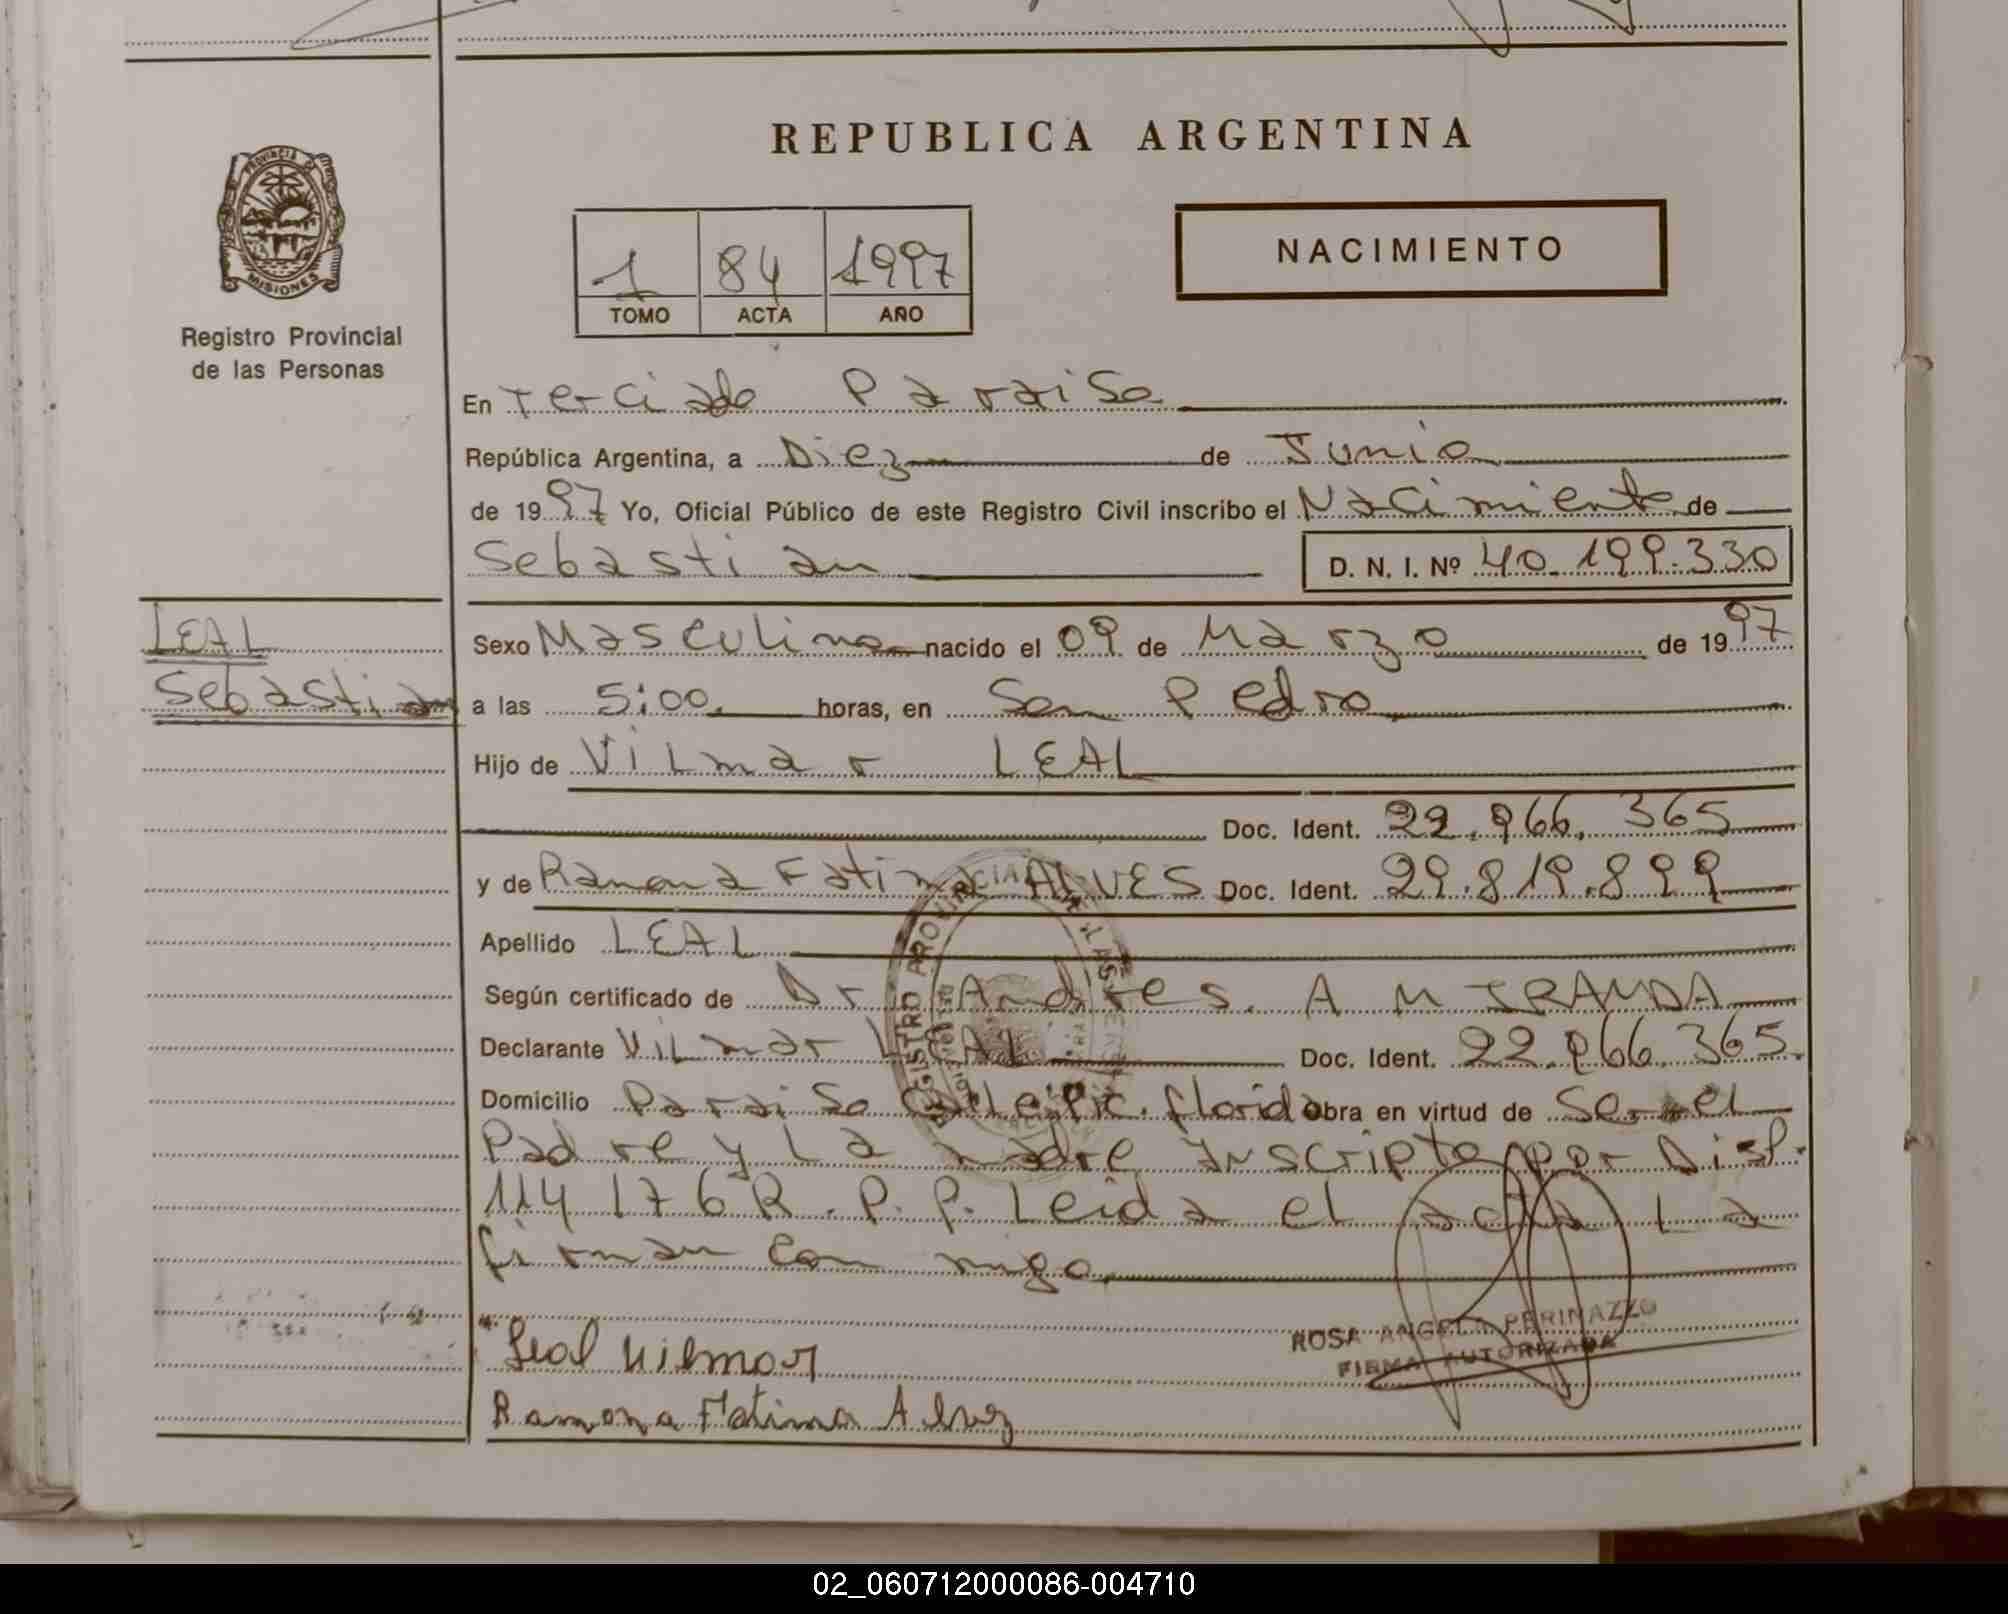 REPUBLICA ARGENTINA
PROVINCIA DE
MISIONES
Registro Provincial
de las Personas
NACIMIENTO
1 84 1997
TOMO ACTA AÑO
En Terciado Paraiso
República Argentina, a Diez de Junio
de 1997 Yo, Oficial Público de este Registro Civil inscribo el Nacimiento de
Sebastian D. N. I. Nº 40.199.330
LEAL
Sebastian
Sexo Masculino nacido el 09 de Marzo de 1997
a las 5:00 horas, en San Pedro
Hijo de Vilmar LEAL
Doc. Ident. 22.966.365
y de Ramona Fatima ALVES Doc. Ident. 29.819.899
Apellido LEAL
Según certificado de Dr Andres. A MIRANDA
Declarante Vilmar LEAL Doc. Ident. 22.966.365
Domicilio Paraiso Florida obra en virtud de Ser el
Padre y La madre Inscripto por Disp.
114/76 R.P.P. Leida el acta La
firman con migo
REGISTRO PROVINCIAL DE LAS
Leal Vilmar
ROSA ANGELA PERINAZZO
FIRMA AUTORIZADA
Ramona Fatima Alvez
02_060712000086-004710